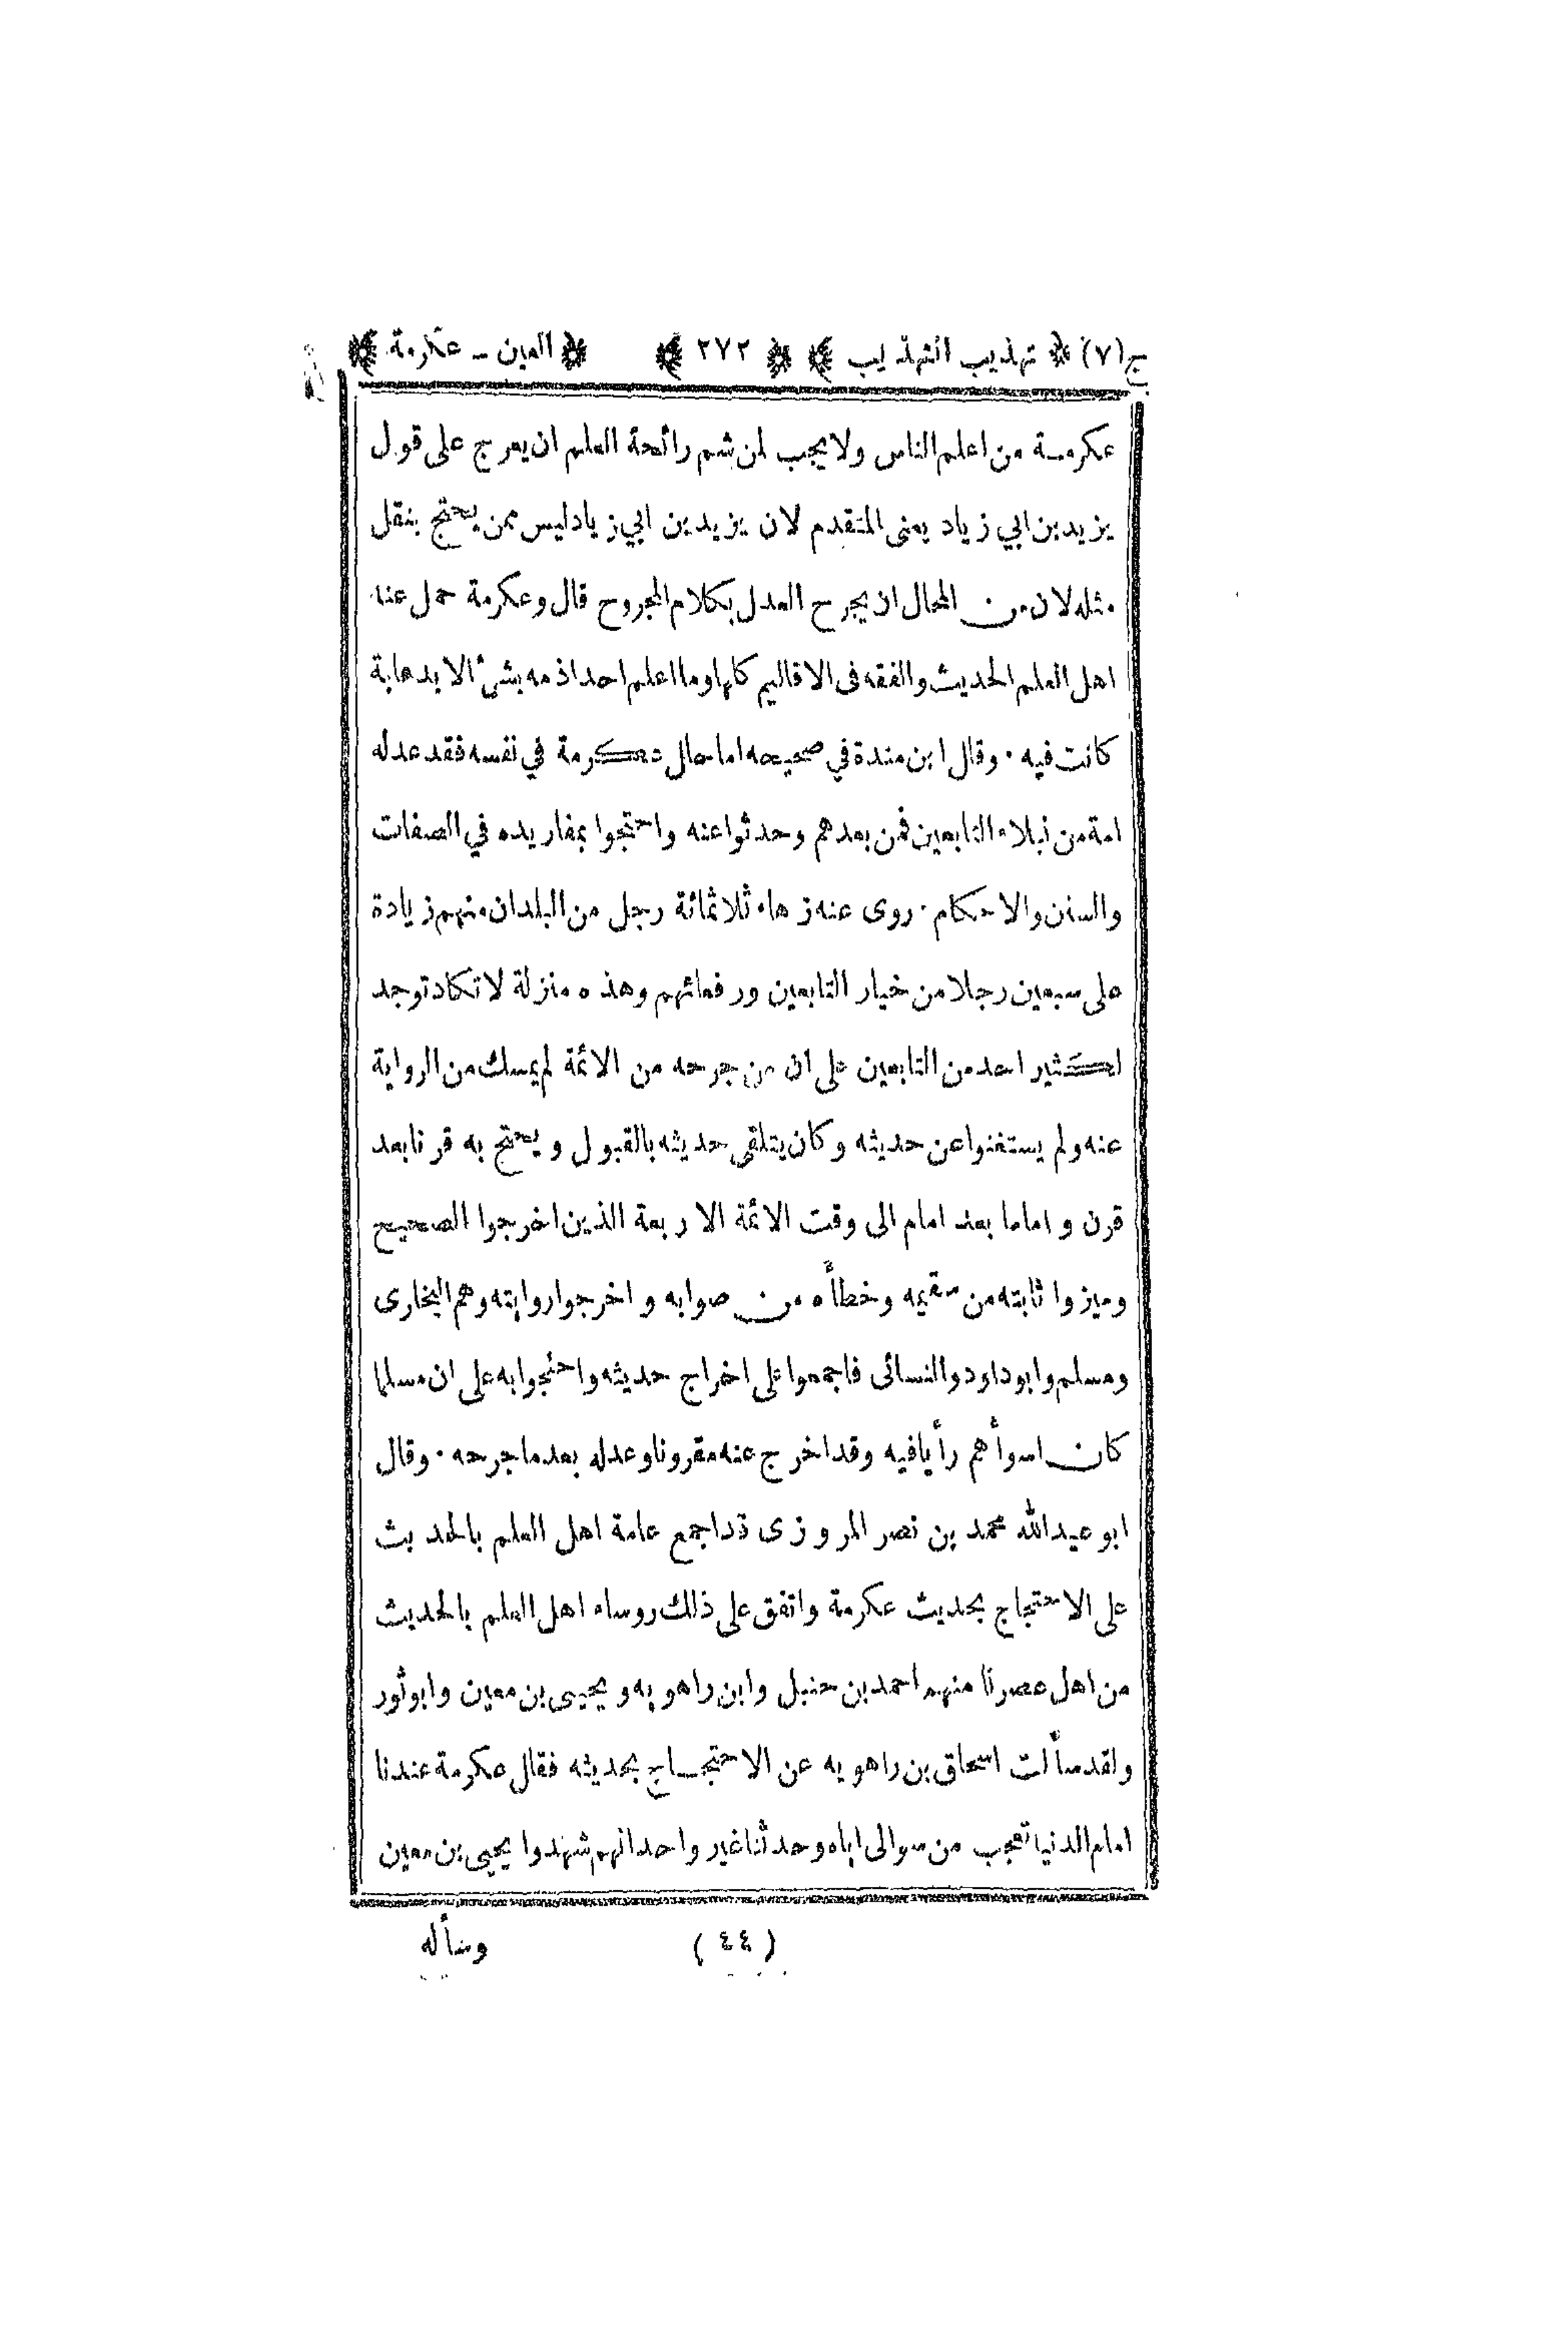 ج(٧) تهذيب التهذيب ٢٧٢ العين ـ عكرمة
عكرمة من اعلم الناس ولا يجب لمن شم رائحة العلم ان يعرج على قول
يزيد بن ابي زياد يعنى المتقدم لان يزيد بن ابي زياد ليس ممن يحتج بنقل
مثله لان من المحال ان يجرح العدل بكلام المجروح قال وعكرمة حمل عنه
اهل العلم الحديث والفقه فى الاقاليم كلها وما اعلم احدا ذمه بشئ الا بدعابة
كانت فيه · وقال ابن مندة في صحيحه اما حال عكرمة في نفسه فقد عدله
امة من نبلاء التابعين فمن بعدهم وحدثوا عنه واحتجوا بمفاريده في الصفات
والسنن والاحكام · روى عنه زهاء ثلاثمائة رجل من البلدان منهم زيادة
على سبعين رجلا من خيار التابعين ورفعائهم وهذه منزلة لا تكاد توجد
لكثير احد من التابعين على ان من جرحه من الائمة لم يمسك من الرواية
عنه ولم يستغنوا عن حديثه وكان يتلقى حديثه بالقبول ويحتج به قرنا بعد
قرن و اماما بعد امام الى وقت الائمة الاربعة الذين اخرجوا الصحيح
وميزوا ثابته من سقيمه وخطأه من صوابه و اخرجوا روايته وهم البخارى
ومسلم وابوداود والنسائى فاجمعوا على اخراج حديثه واحتجوا به على ان مسلما
كان اسوأهم رأيا فيه وقد اخرج عنه مقرونا وعدله بعد ما جرحه · وقال
ابو عبدالله محمد بن نصر المروزى قد اجمع عامة اهل العلم بالحديث
على الاحتجاج بحديث عكرمة واتفق على ذلك روساء اهل العلم بالحديث
من اهل عصرنا منهم احمد بن حنبل وابن راهويه و يحيى بن معين وابوثور
ولقد سألت اسحاق بن راهويه عن الاحتجاج بحديثه فقال عكرمة عندنا
امام الدنيا تعجب من سوالى اياه وحدثنا غير واحد انهم شهدوا يحيى بن معين
(٤٤) وسأله